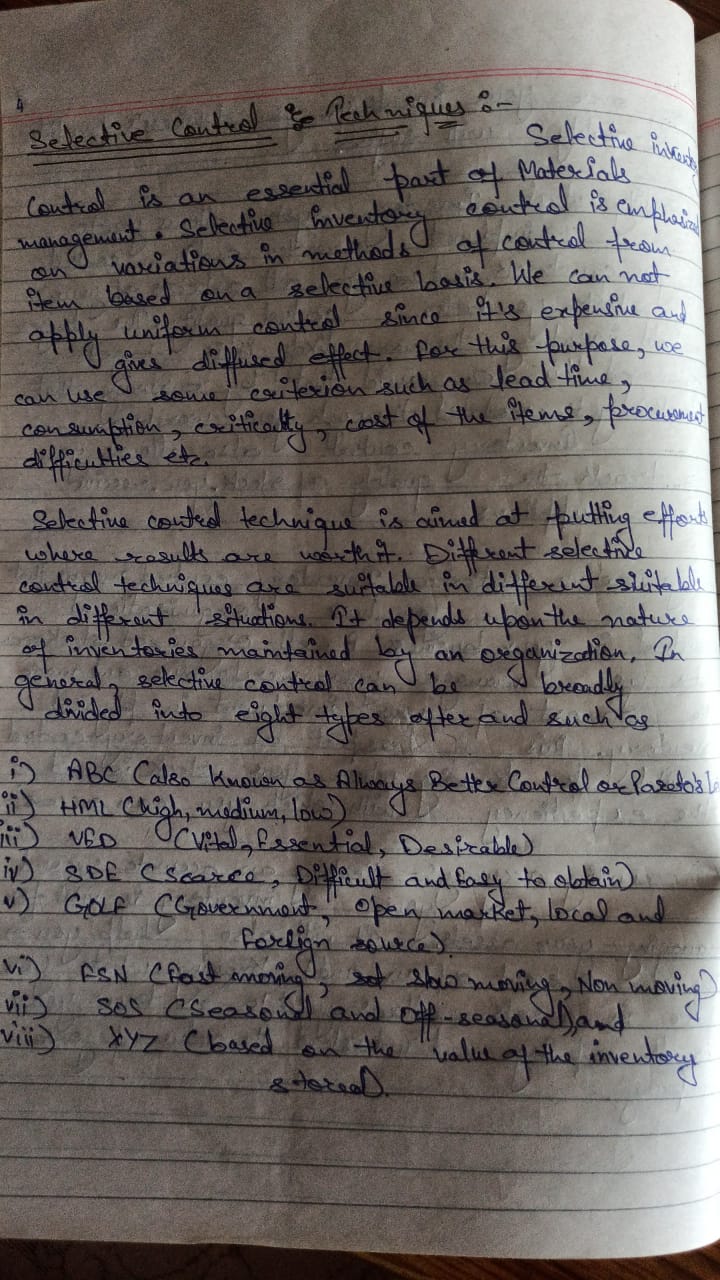 4
Selective Control & Techniques :-
Selective
Control is an essential part of Materials
management. Selective inventory control is emphasized
on variations in methods of control from
item based on a selective basis. We can not
apply uniform control since it's expensive and
gives diffused effect. For this purpose, we
can use some criterion such as lead time,
consumption, criticality, cost of the items, procurement
difficulties etc.
Selective control technique is aimed at putting efforts
where results are worth it. Different selective
control techniques are suitable in different suitable
in different situations. It depends upon the nature
of inventories maintained by an organization. In
general, selective control can be broadly
divided into eight types after and such as
i) ABC (also known as Always Better Control or Pareto's
ii) HML (high, medium, low)
iii) VED (Vital, Essential, Desirable)
iv) SDE (Scarce, Difficult and Easy to obtain)
v) GOLF (Government, Open market, local and
foreign source).
vi) FSN (Fast moving, slow moving, Non moving)
vii) SOS (Seasonal and Off-seasonal), and
viii) XYZ (based on the value of the inventory
stored).